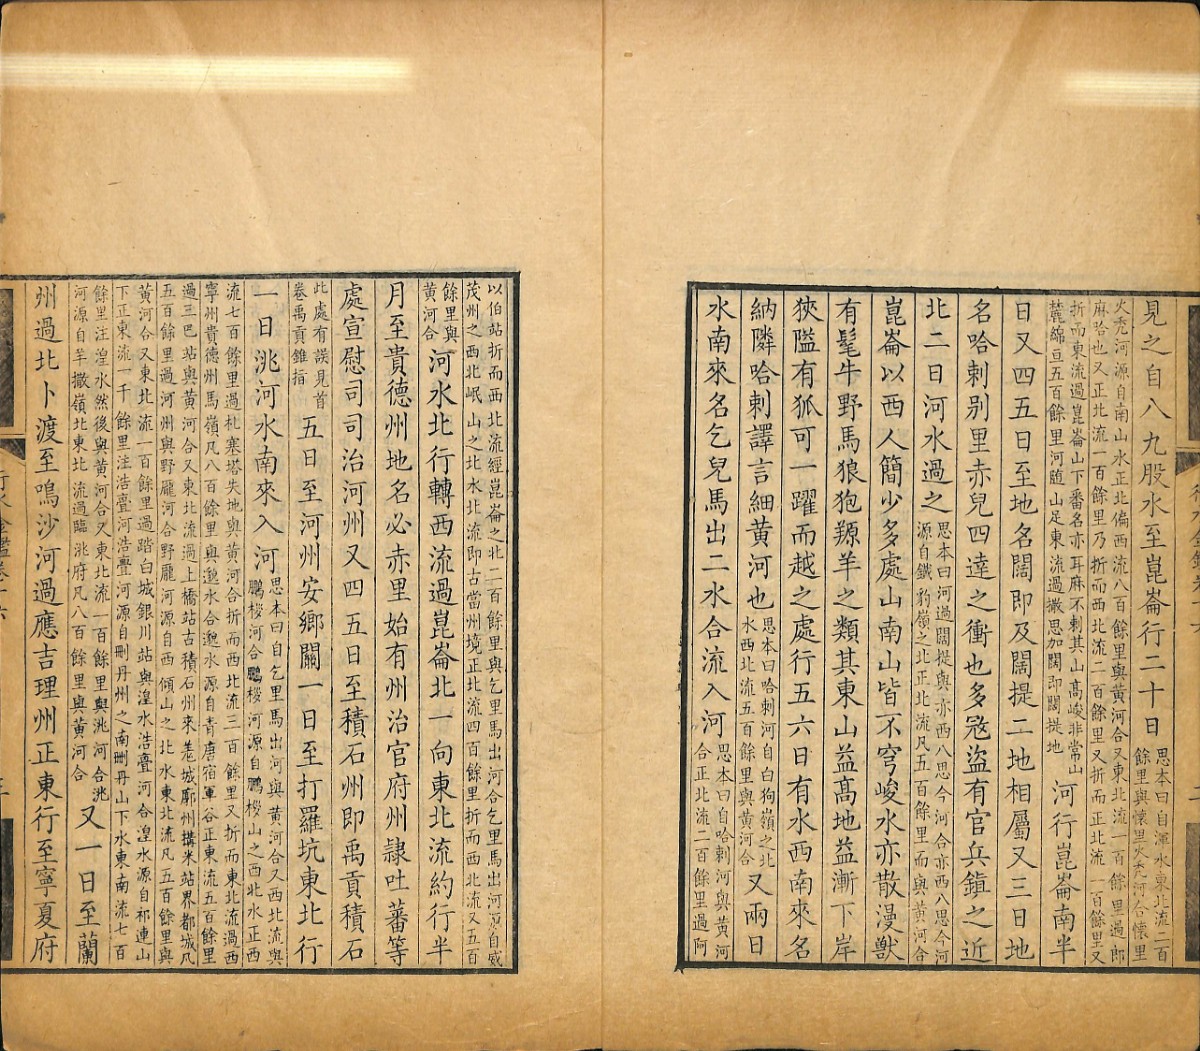 見之自八九股水至崑崙行二十日 思本曰自渾水東北流二百
餘里與懷里火禿河合懷里
火禿河源自南山水正北偏西流八百餘里與黃河合又東北流一百餘里過郎
麻哈也又正北流一百餘里乃折而西北流二百餘里又折而正北流一百餘里又
折而東流過崑崙山下番名亦耳麻不剌其山高峻非常山
麓綿亘五百餘里河隨山足東流過撒思加闊即闊提地 河行崑崙南半
日又四五日至地名闊即及闊提二地相屬又三日地
名哈剌别里赤兒四達之衝也多宼盜有官兵鎮之近
北二日河水過之 思本曰河過闊提與亦西八思今河合亦西八思今河
源自鐵豹嶺之北正北流凡五百餘里而與黃河合
崑崙以西人簡少多處山南山皆不穹峻水亦散漫獸
有髦牛野馬狼狍羱羊之類其東山益高地益漸下岸
狹隘有狐可一躍而越之處行五六日有水西南來名
納隣哈剌譯言細黃河也 思本曰哈剌河自白狗嶺之北
水西北流五百餘里與黃河合 又兩日
水南來名乞兒馬出二水合流入河 思本曰自哈剌河與黃河
合正北流二百餘里過阿
以伯站折而西北流經崑崙之北二百餘里與乞里馬出河合乞里馬出河源自威
茂州之西北岷山之北水北流即古當州境正北流四百餘里折而西北流又五百
餘里與
黃河合 河水北行轉西流過崑崙北一向東北流約行半
月至貴德州地名必赤里始有州治官府州隸吐蕃等
處宣慰司司治河州又四五日至積石州即禹貢積石
此處有誤見首
卷禹貢錐指 五日至河州安鄉關一日至打羅坑東北行
一日洮河水南來入河 思本曰自乞里馬出河與黃河合又西北流與
鵬拶河合鵬拶河源自鵬拶山之西北水正西
流七百餘里過札塞塔失地與黃河合折而西北流三百餘里又折而東北流過西
寧州貴德州馬嶺凡八百餘里與邈水合邈水源自青唐宿軍谷正東流五百餘里
過三巴站與黃河合又東北流過土橋站古積石州來羗城廓州搆米站界都城凡
五百餘里過河州與野龐河合野龐河源自西傾山之北水東北流凡五百餘里與
黃河合又東北流一百餘里過踏白城銀川站與湟水浩亹河合湟水源自祁連山
下正東流一千餘里注浩亹河浩亹河源自刪丹州之南刪丹山下水東南流七百
餘里注湟水然後與黃河合又東北流一百餘里與洮河合洮
河源自羊撒嶺北東北流過臨洮府凡八百餘里與黃河合 又一日至蘭
州過北卜渡至鳴沙河過應吉理州正東行至寧夏府